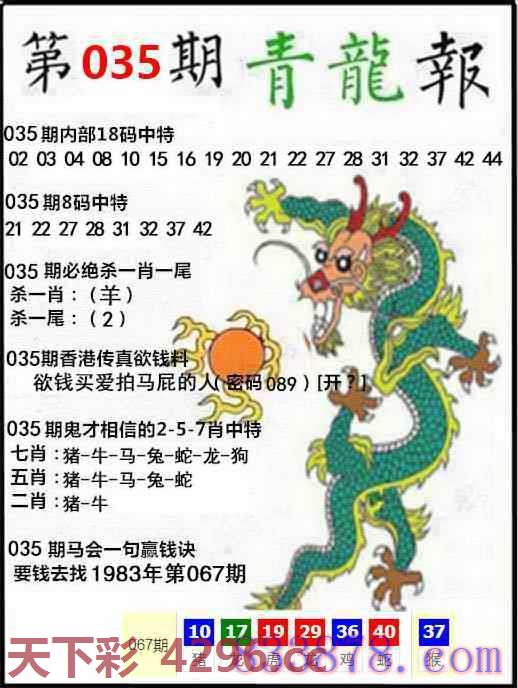 第035期青龍報
035期内部18码中特
02 03 04 08 10 15 16 19 20 21 22 27 28 31 32 37 42 44
035期8码中特
21 22 27 28 31 32 37 42
035 期必绝杀一肖一尾
杀一肖：（羊）
杀一尾：（2）
035期香港传真欲钱料
欲钱买爱拍马屁的人(密码089)[开？]
035期鬼才相信的2-5-7肖中特
七肖：猪-牛-马-兔-蛇-龙-狗
五肖：猪-牛-马-兔-蛇
二肖：猪-牛
035 期马会一句赢钱诀
要钱去找1983年第067期
067期 10 17 19 29 36 40 37
猪 龙 虎 龙 鸡 蛇 猴
天下彩 4296.cc